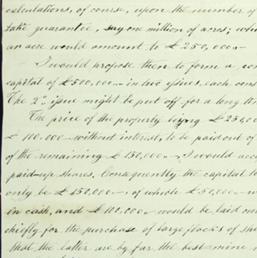 calculations, of course, upon the number of
take guarantee, say one million of acres; wh
an acre would amount to £250,000.
I would propose then to form a com
capital of £500,000 - in two issues, each on
The 2d issue might be put off for a long ti
The price of the property being £250,00
£100,000 without interest, to be paid out of
of the remaining £150,000 - I would acc
paid-up shares. Consequently the capital to
only be £350,000 - of which £50,000 w
in cash, and £100,000 would be laid out
chiefly for the purchase of large flocks of she
that the latter are by far the best mine